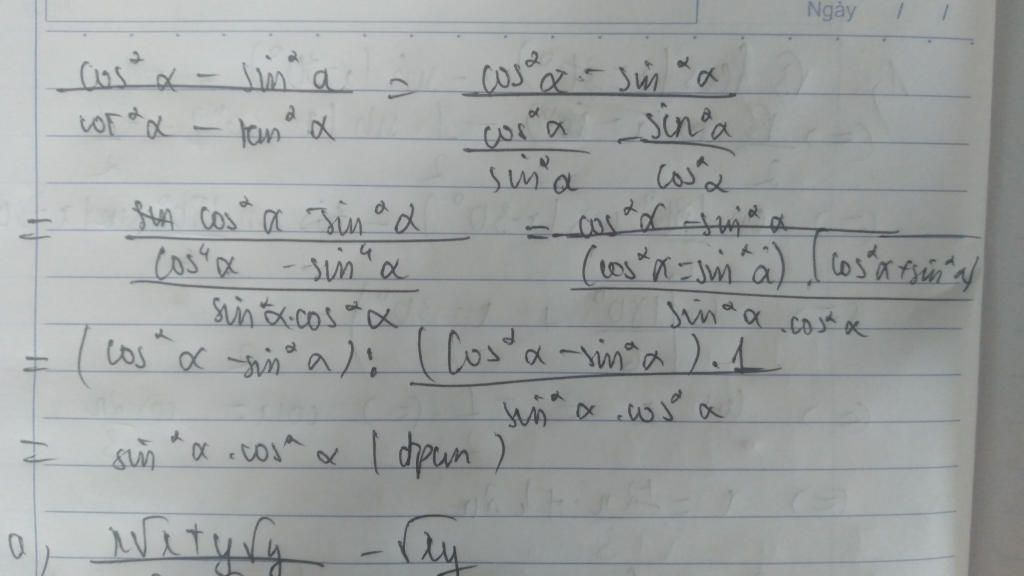 Ngày / /
cos²α - sin²α / cot²α - tan²α = cos²α - sin²α / (cos²α / sin²α - sin²α / cos²α)
= cos²α - sin²α / (cos⁴α - sin⁴α / sin²α.cos²α) = cos²α - sin²α / ((cos²α - sin²α).(cos²α + sin²α) / sin²α.cos²α)
= (cos²α - sin²α) : (cos²α - sin²α).1 / sin²α.cos²α
= sin²α.cos²α (đpcm)
a, x√x + y√y - √xy